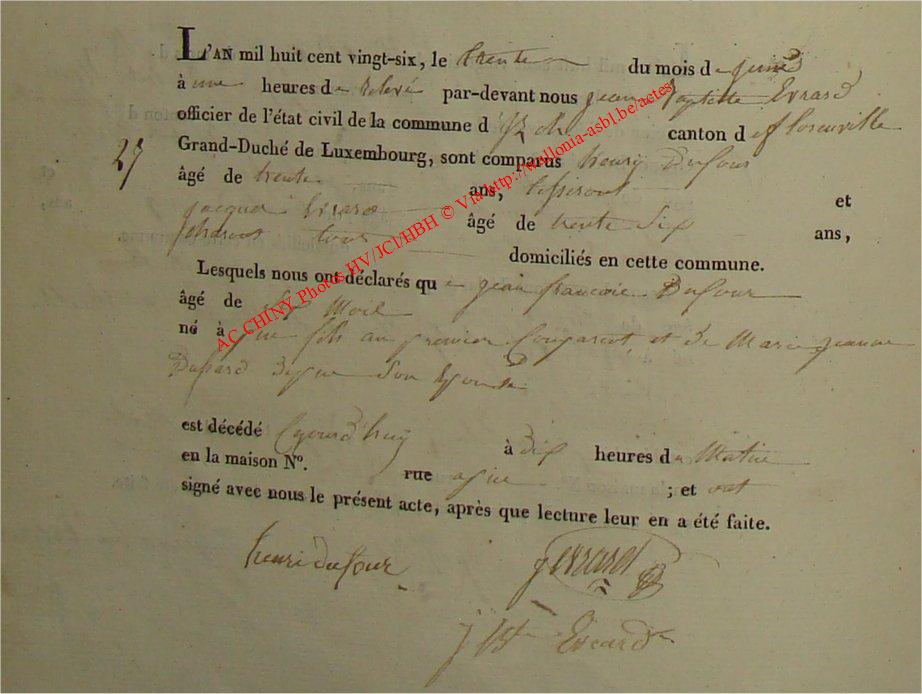 L'AN mil huit cent vingt-six, le trente du mois de
à une heures de relevé par-devant nous jean Baptiste Evrard
officier de l'état civil de la commune d canton de florenville
27
Grand-Duché de Luxembourg, sont comparus henry Dufour
âgé de trente ans, tisserant et
jacques Evrard âgé de trente Six ans,
tous domiciliés en cette commune.
Lesquels nous ont déclarés que jean francoie Dufour
âgé de Six Mois
né à fils au premier Comparent et de Marie jeanne
son Epouse
est décédé à dix heures du Matin
en la maison N°. rue ; et ont
signé avec nous le présent acte, après que lecture leur en a été faite.
henri dufour jevrard
j Bte Evrard
AC CHINY Photos HV/JCl/HBH © Via http://wallonia-asbl.be/actes